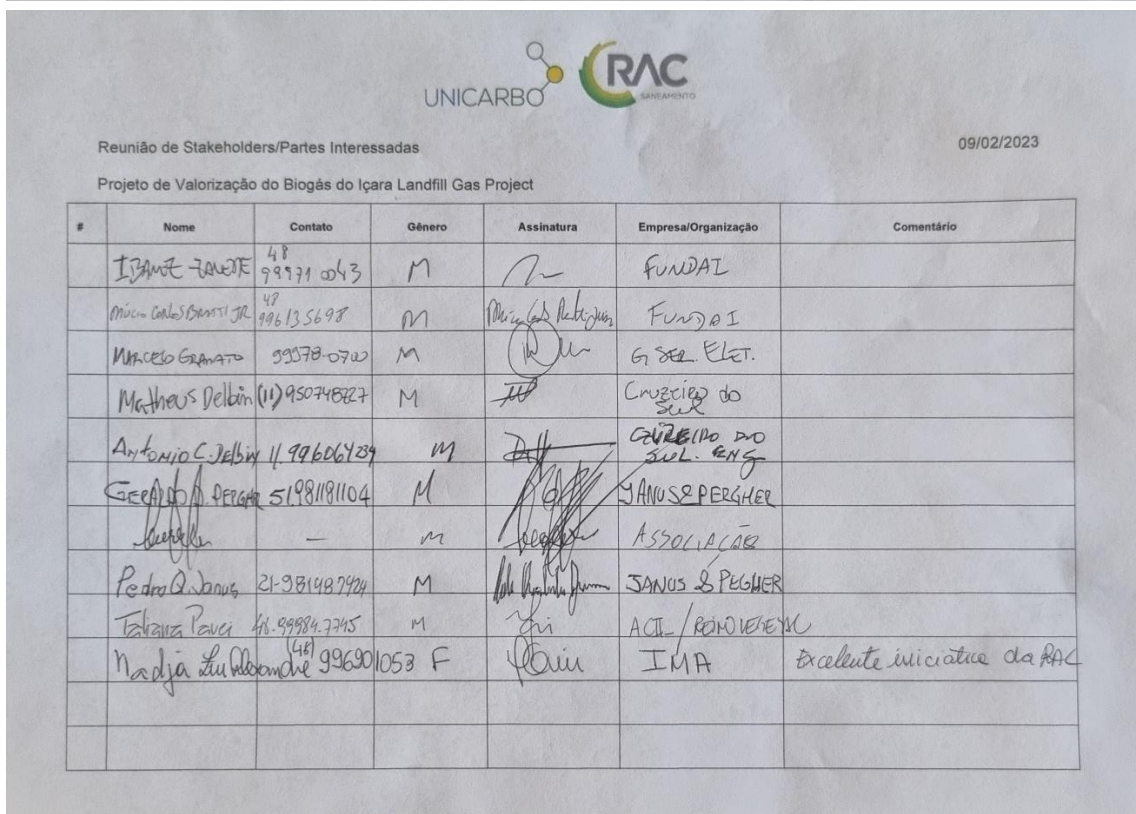 UNICARBO
RAC
SANEAMENTO
Reunião de Stakeholders/Partes Interessadas 09/02/2023
Projeto de Valorização do Biogás do Içara Landfill Gas Project
# Nome Contato Gênero Assinatura Empresa/Organização Comentário
48
99971 0043 M FUNDAI
48
996135698 M FUNDAI
MARCELO GRANATO 99978-0700 M G SER. ELET.
Matheus Delbin (11) 950748227 M Cruzeiro do
Sul
Antonio C. Delbin 11.996064239 M
SUL. ENG
PERGHER 51981181104 M JANUS & PERGHER
— M ASSOCIAÇÃO
Pedro Q. Janus 21-981487924 M JANUS & PEGHER
Tatiana 48.99984.7745 M
(48)
Nadja 996901053 F IMA Excelente iniciativa da RAC